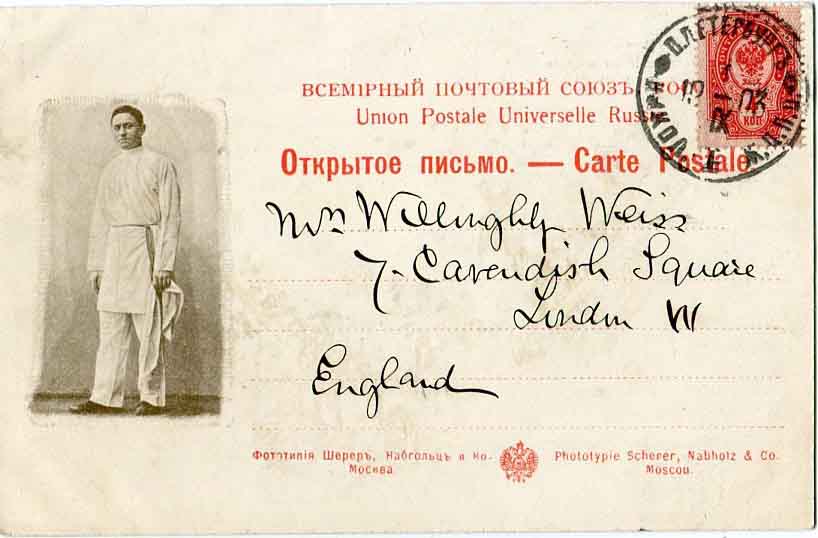 ВСЕМІРНЫЙ ПОЧТОВЫЙ СОЮЗЪ.
Union Postale Universelle Russie
Открытое письмо. — Carte Postale
КОП
Mrs Willoughby Weiss
7. Cavendish Square
London W
England
Фототипія Шереръ, Набгольцъ и Ко.
Москва
Phototypie Scherer, Nabholz & Co.
Moscou.